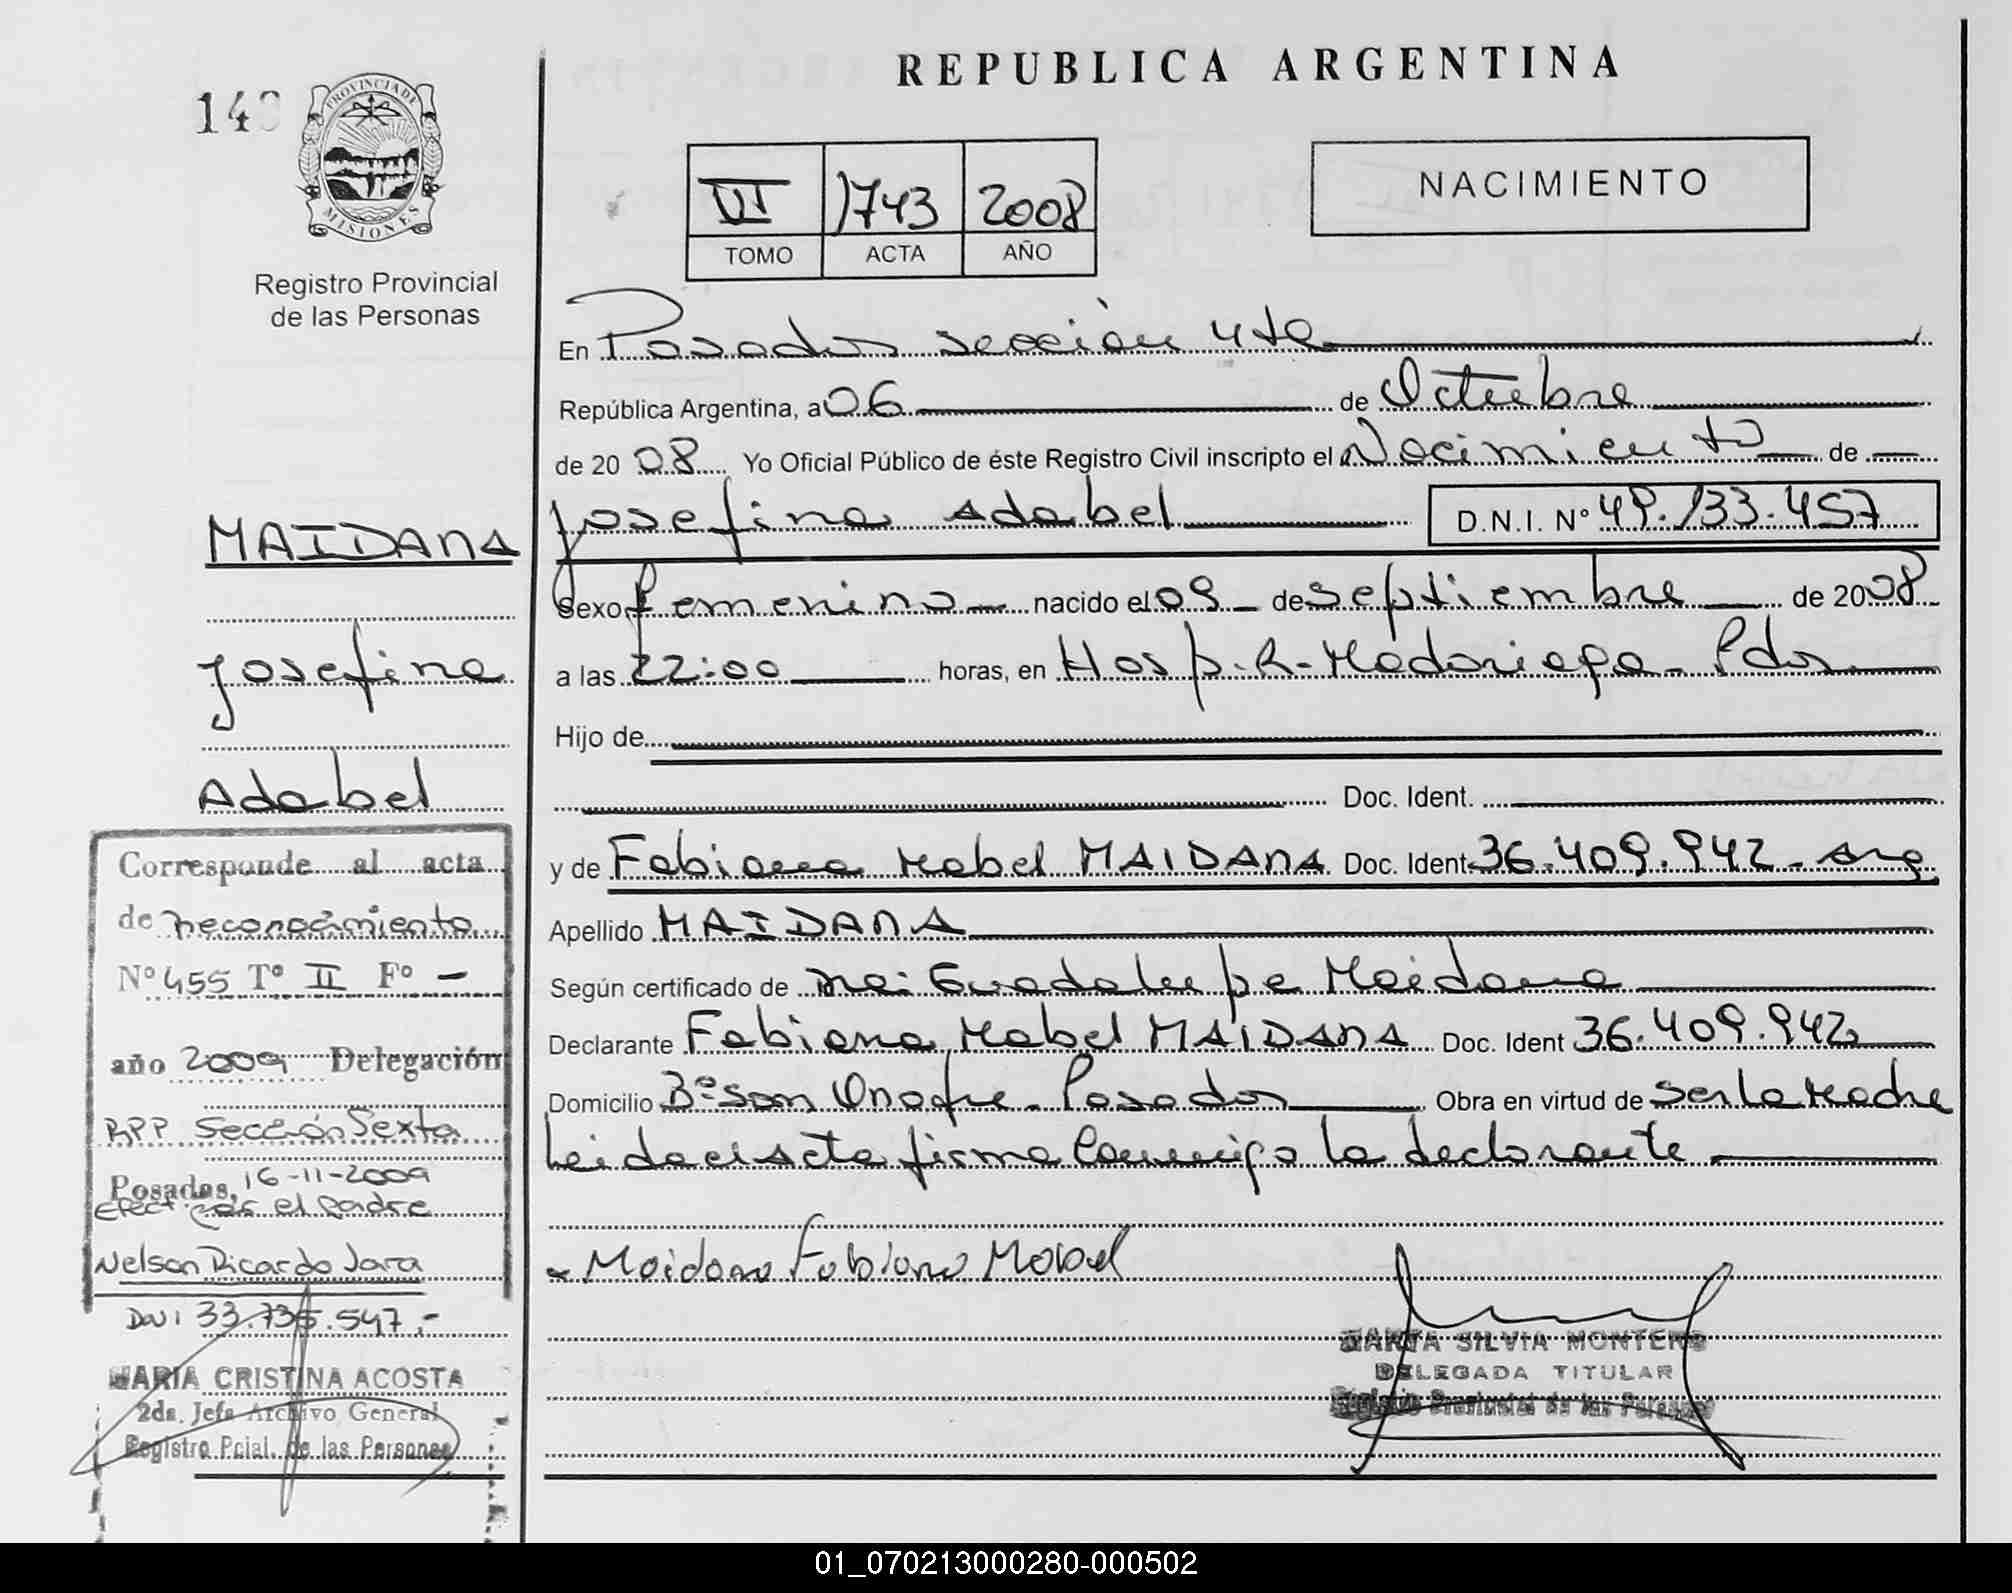 REPUBLICA ARGENTINA
PROVINCIA DE
MISIONES
Registro Provincial
de las Personas
VI 1743 2008
TOMO ACTA AÑO
NACIMIENTO
En Posadas sección 4ta
República Argentina, a 06 de Octubre
de 2008 Yo Oficial Público de éste Registro Civil inscripto el Nacimiento de
Josefina Adabel D.N.I. Nº 49.133.457
Sexo femenino nacido el 09 de septiembre de 2008
a las 22:00 horas, en Hosp. R. Madariaga - Pdas
Hijo de
Doc. Ident.
y de Fabiana Mabel MAIDANA Doc. Ident. 36.409.942 - arg
Apellido MAIDANA
Según certificado de Guadalupe Maidana
Declarante Fabiana Mabel MAIDANA Doc. Ident 36.409.942
Domicilio Bº San Onofre - Posadas Obra en virtud de ser la Madre
Leida el Acta firma Conmigo la declarante
Maidana Fabiana Mabel
MARTA SILVIA MONTERO
DELEGADA TITULAR
Registro Provincial de las Personas
MAIDANA
Josefina
Adabel
Corresponde al acta
de reconocimiento
Nº 455 Tº II Fº -
año 2009 Delegación
RPP Sección Sexta
Posadas, 16-11-2009
Efect. por el padre
Nelson Ricardo Jara
DNI 33.735.547.-
MARIA CRISTINA ACOSTA
2da. Jefe Archivo General
Registro Pcial. de las Personas
01_070213000280-000502